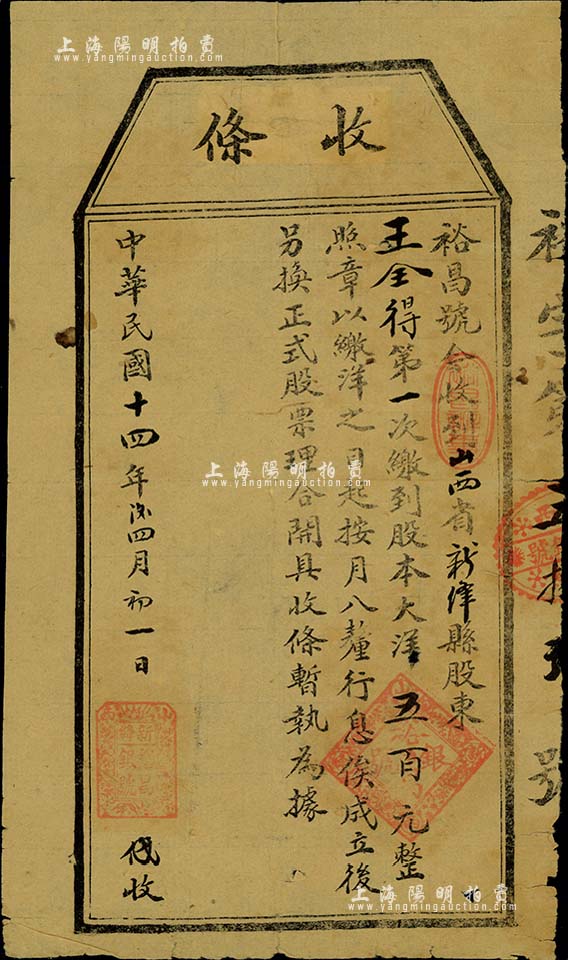 上海陽明拍賣
www.yangmingauction.com
收條
裕昌號今收到山西省新绛縣股東
王全得第一次繳到股本大洋五百元整
照章以繳洋之日起按月八釐行息俟成立後
另換正式股票理合開具收條暫執為據
中華民國十四年閏四月初一日
代收
上海陽明拍賣
www.yangmingauction.com
號
上海陽明拍賣
www.yangmingauction.com